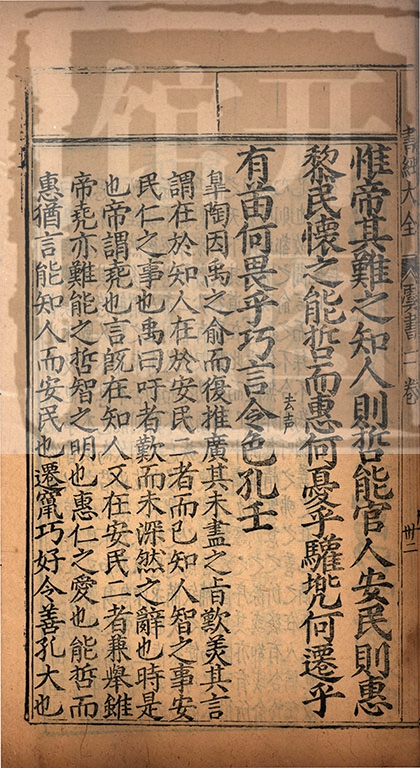 書經大全 虞書二卷 卅二
惟帝其難之知人則哲能官人安民則惠
黎民懷之能哲而惠何憂乎驩兜何遷乎
去声
有苗何畏乎巧言令色孔壬
臯陶因禹之俞而復推廣其未盡之旨歎美其言
謂在於知人在於安民二者而已知人智之事安
民仁之事也禹曰吁者歎而未深然之辭也時是
也帝謂堯也言旣在知人又在安民二者兼舉雖
帝堯亦難能之哲智之明也惠仁之愛也能哲而
惠猶言能知人而安民也遷竄巧好令善孔大也